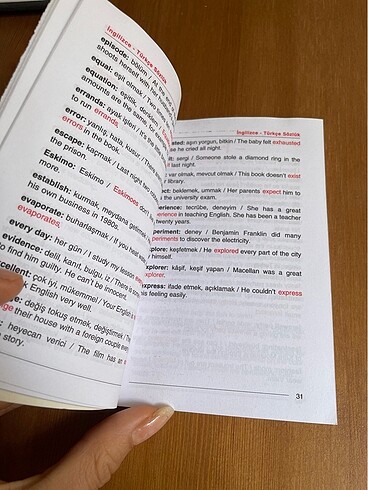 İngilizce - Türkçe Sözlük
episode: bölüm / All the
shoots herself with her
equal: eşit olmak / Two
equation: eşitlik, denklem
amounts are the same, for
errands: ayak işleri / It's the
to run errands.
error: yanlış, hatu, kusur / There
errors in the book.
escape: kaçmak / Last night two
the prison.
Eskimo: Eskimo / Eskimoes don't
more.
establish: kurmak, meydana getirmek
his own business in 1990s.
evaporate: buharlaşmak / If you heat
evaporates.
every day: her gün / I study my lesson
evidence: delil, kanıt, bulgu, iz / There is
to find him guilty. He can't be innocent.
excellent: çok iyi, mükemmel / Your English
English very well.
değiş tokuş etmek, değiştirmek / The
their house with a foreign couple every
heyecan verici / The film has an
story.
İngilizce - Türkçe Sözlük
aşırı yorgun, bitkin / The baby felt exhausted
he cried all night.
sergi / Someone stole a diamond ring in the
last night.
var olmak, mevcut olmak / This book doesn't exist
library.
beklemek, ummak / Her parents expect him to
the university exam.
tecrübe, deneyim / She has a great
in teaching English. She has been a teacher
twenty years.
deney / Benjamin Franklin did many
to discover the electricity.
keşfetmek / He explored every part of the city
himself.
kâşif, keşif yapan / Macellan was a great
explorer.
express: ifade etmek, açıklamak / He couldn't express
his feeling easily.
31